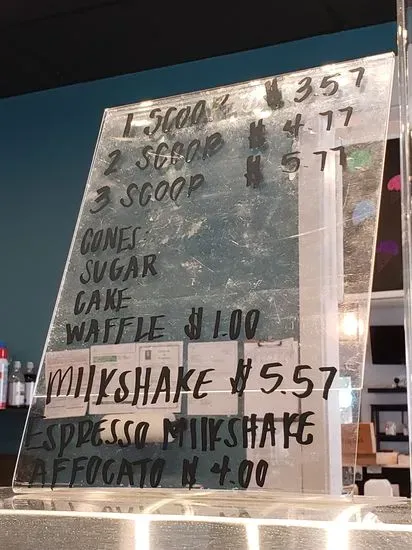 1 SCOOP $3.57
2 SCOOP $4.77
3 SCOOP $5.77
CONES:
SUGAR
CAKE
WAFFLE $1.00
MilKSHAKE $5.57
ESPRESSO MilKSHAKE
AFFOGATO $4.00